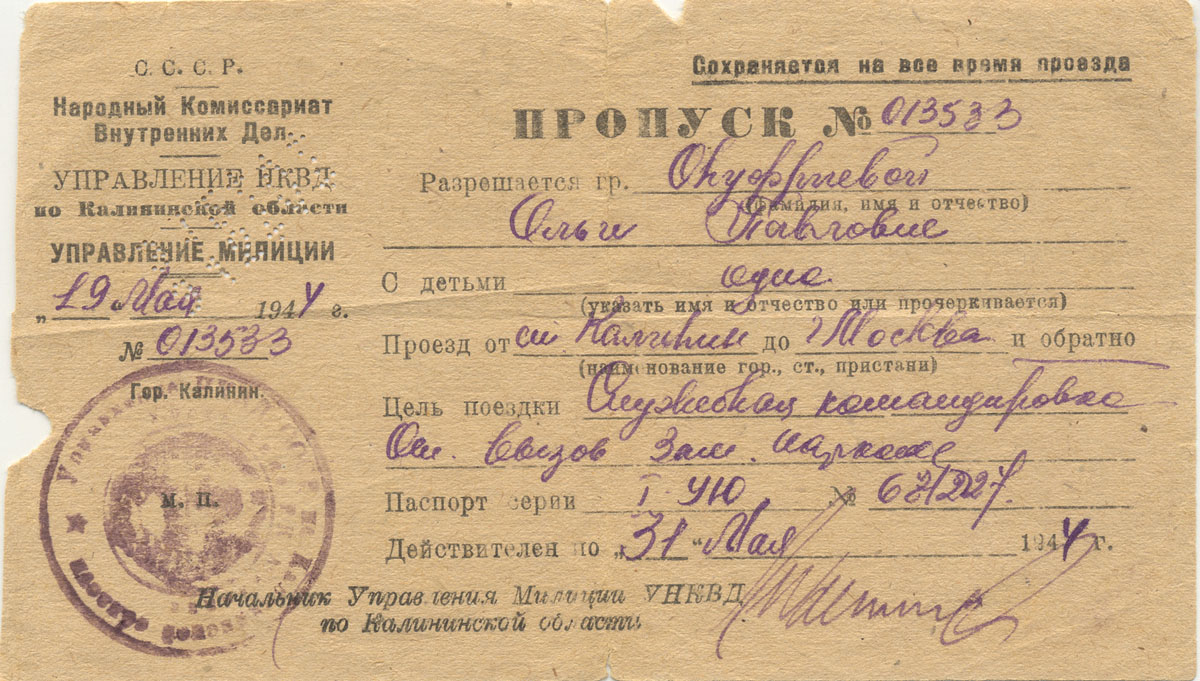 С. С. С. Р.
Народный Комиссариат
Внутренних Дел
УПРАВЛЕНИЕ НКВД
по Калининской области
УПРАВЛЕНИЕ МИЛИЦИИ
„19 Мая 1944 г.
№ 013533
Гор. Калинин.
М. П.
Сохраняется на все время проезда
ПРОПУСК № 013533
Разрешается гр. Онуфриевой
(фамилия, имя и отчество)
Ольги Павловне
С детьми одна
(указать имя и отчество или прочеркивается)
Проезд от ст Калинин до г Москва и обратно
(наименование гор., ст., пристани)
Цель поездки Служебная командировка
Вызов Зам. наркома
Паспорт серии I-УЮ №
Действителен по „31“ Мая 1944 г.
Начальник Управления Милиции УНКВД
по Калининской области